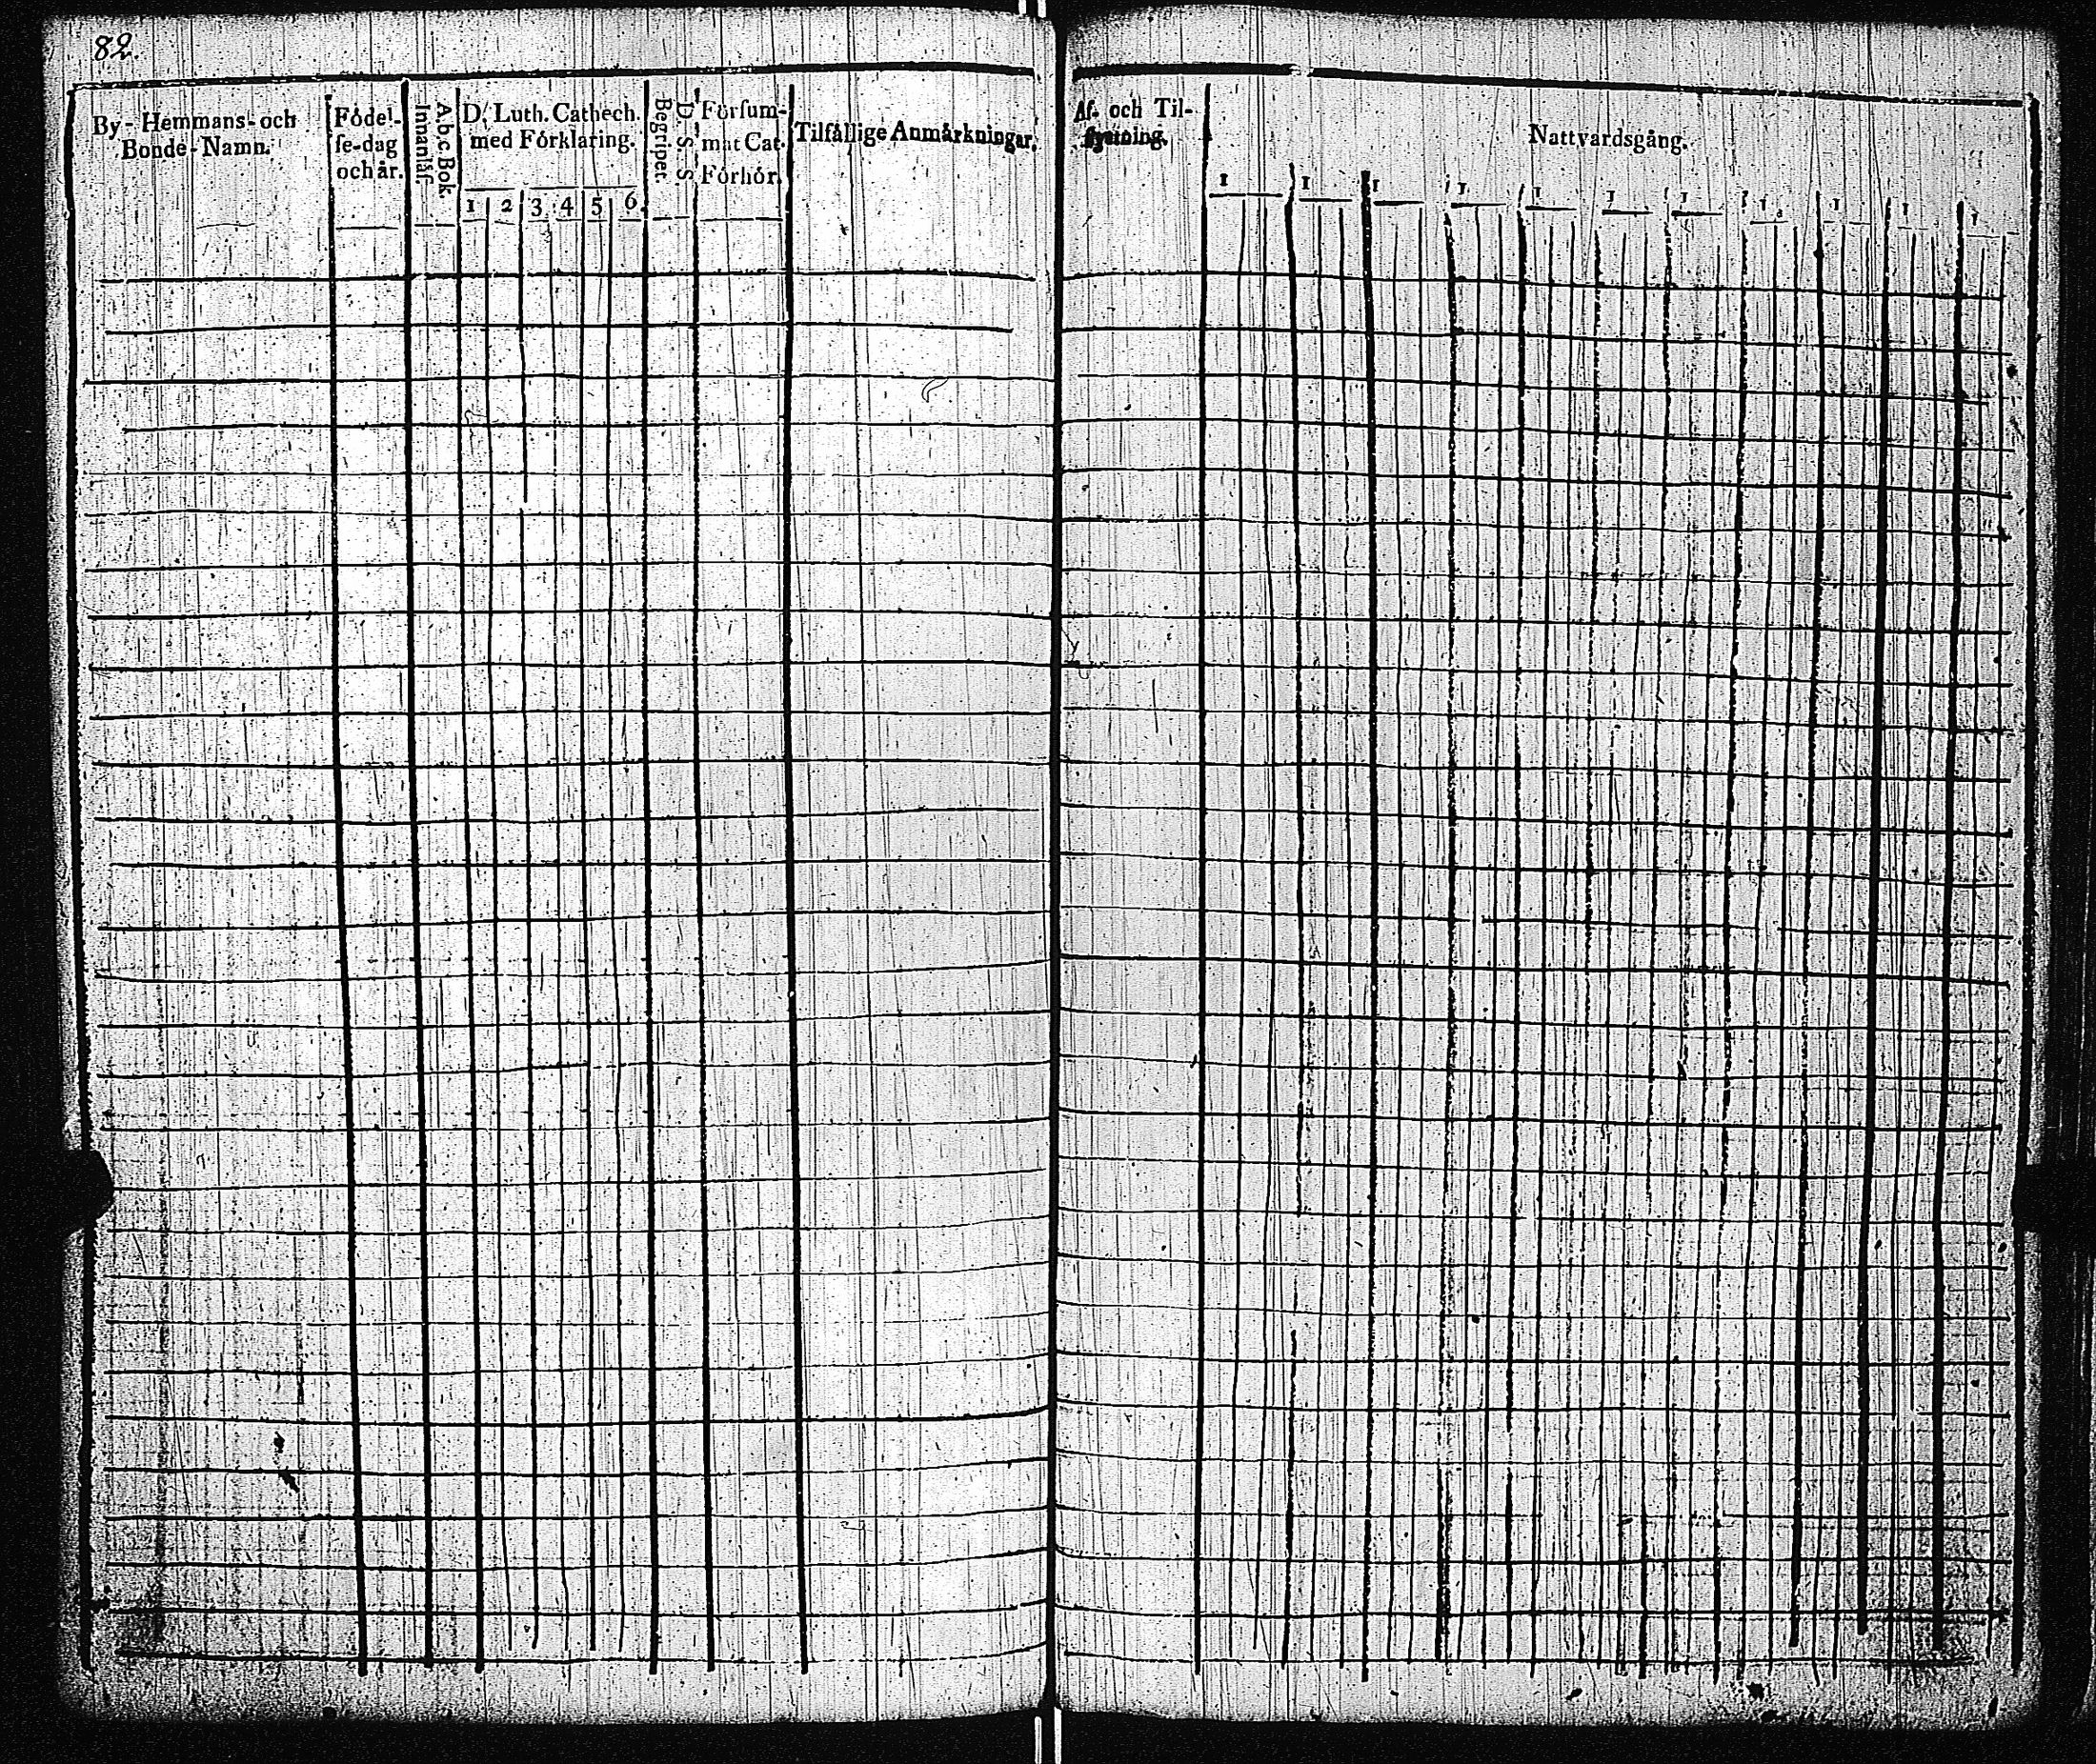 82.
By- Hemmans- och
Bonde-Namn.
Födel-
se-dag
och år.
A.b.c Bok.
Innanläs.
D. Luth. Cathech.
med Förklaring.
1 2 3 4 5 6.
D. S. S.
Begriper.
Försum-
mat Cat.
Förhör.
Tilfällige Anmärkningar.
Af- och Til-
flyttning.
Nattvardsgång.
1 1 1 1 1 1 1 1 1 1 1